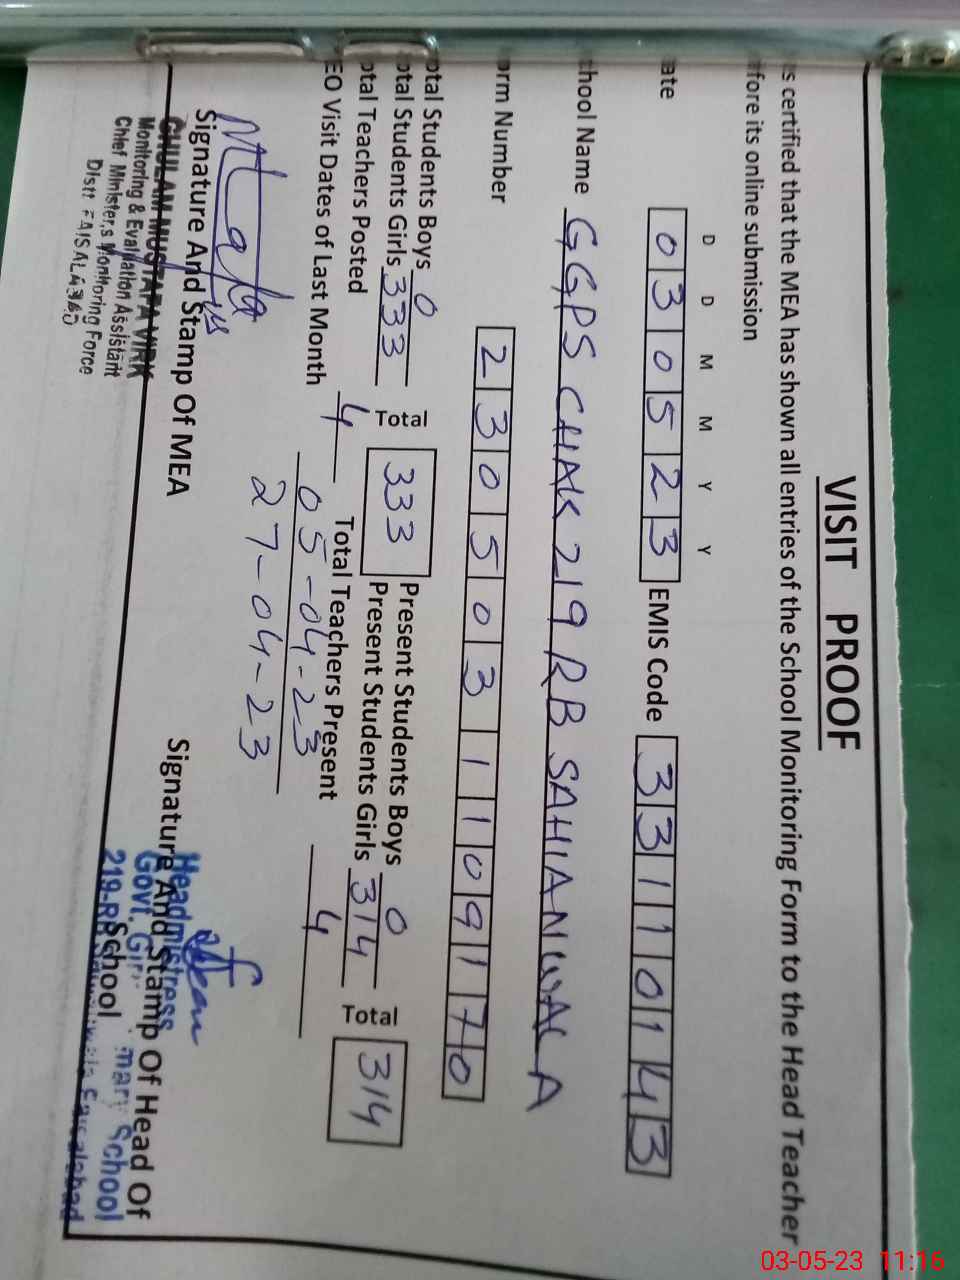 VISIT PROOF
s certified that the MEA has shown all entries of the School Monitoring Form to the Head Teacher
fore its online submission
D D M M Y Y
ate 0 3 0 5 2 3 EMIS Code 3 3 1 1 0 1 4 3
chool Name GGPS CHAK 219 RB SAHIANWALA
orm Number 2 3 0 5 0 3 1 1 1 0 9 1 7 0
otal Students Boys 0 Present Students Boys 0
otal Students Girls 333 Total 333 Present Students Girls 314 Total 314
otal Teachers Posted 4 Total Teachers Present 4
EO Visit Dates of Last Month 05-04-23
27-04-23
Signature And Stamp Of MEA
GHULAM MUSTAFA VIRK
Monitoring & Evaluation Assistant
Chief Minister,s Monitoring Force
Distt FAISALABAD
Signature And Stamp Of Head Of
School
Headmistress
Govt. Gir mary School
219-RB Faisalabad
03-05-23 11:16